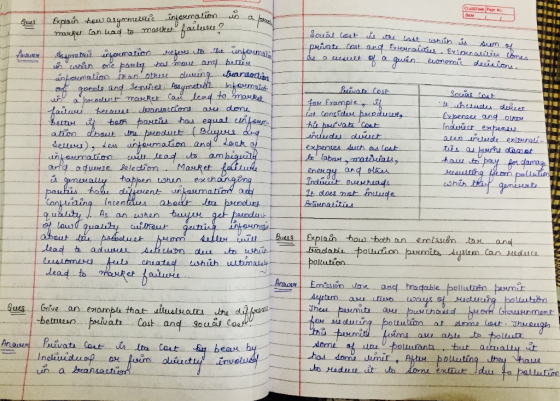 Ques Explain how asymmetric information in a
market can lead to market failure?
Answer Asymmetric information refers to the information
in which one party has more and better
information than other during transaction
of goods and services. Asymmetric information
in a product market can lead to market
failure because transactions are done
better if both parties has equal
about the product (Buyers and
Sellers), Less information and Lack of
information will lead to ambiguity
and adverse selection. Market failure
is generally happen when exchanging
parties have different information and
Conflicting Incentives about the product
quality. As an when buyer get product
of low quality without getting information
about the product from seller will
lead to adverse selection due to which
customers feels cheated which ultimately
lead to market failure
Ques Give an example that illustrates the
between private Cost and Social Cost
Answer Private Cost is the Cost bear by
Individual or firm directly involved
in a transaction
CLASSTIME Page No.
Date / /
Social Cost is the cost which is sum of
private cost and Externalities. Externalities comes
as a result of a given economic decision.
Private Cost
For Example, If
we consider producer,
his private cost
includes direct
expenses such as cost
to labor, materials,
energy and other
Indirect overheads
It does not include
Externalities
Social Cost
It includes direct
Expenses and other
Indirect expenses
also include
as firms do not
have to pay for damage
resulting from pollution
which they generate
Ques Explain how both an emission tax and
tradable pollution permits system can reduce
pollution
Answer Emission tax and tradable pollution permit
system are two ways of reducing pollution
These permits are purchased from Government
for reducing pollution at some cost. Through
this permits firms are able to pollute
some of the pollutants, but actually it
has some limit. After polluting they have
to reduce it to some extent due to pollution